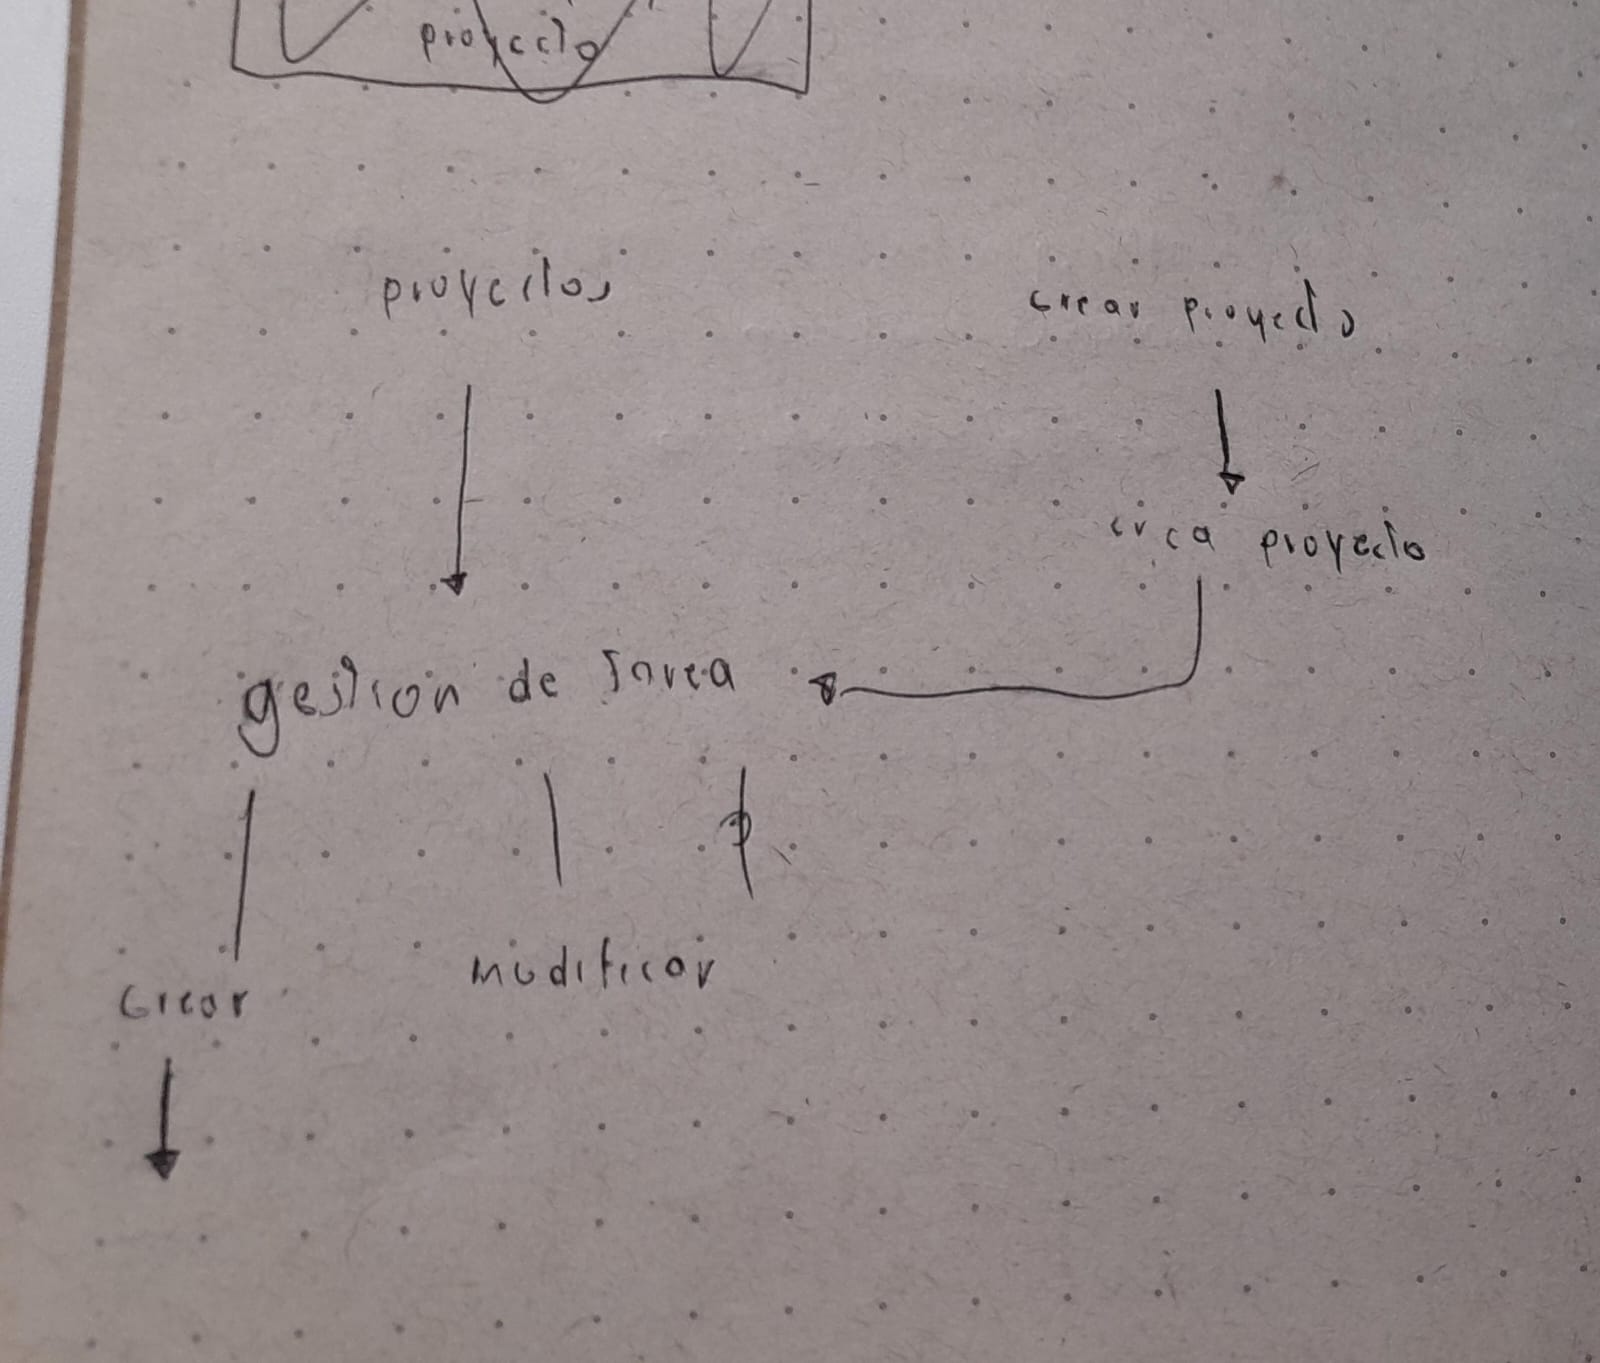 proyecto
proyectos
crear proyecto
crea proyecto
gestion de tarea
modificar
crear